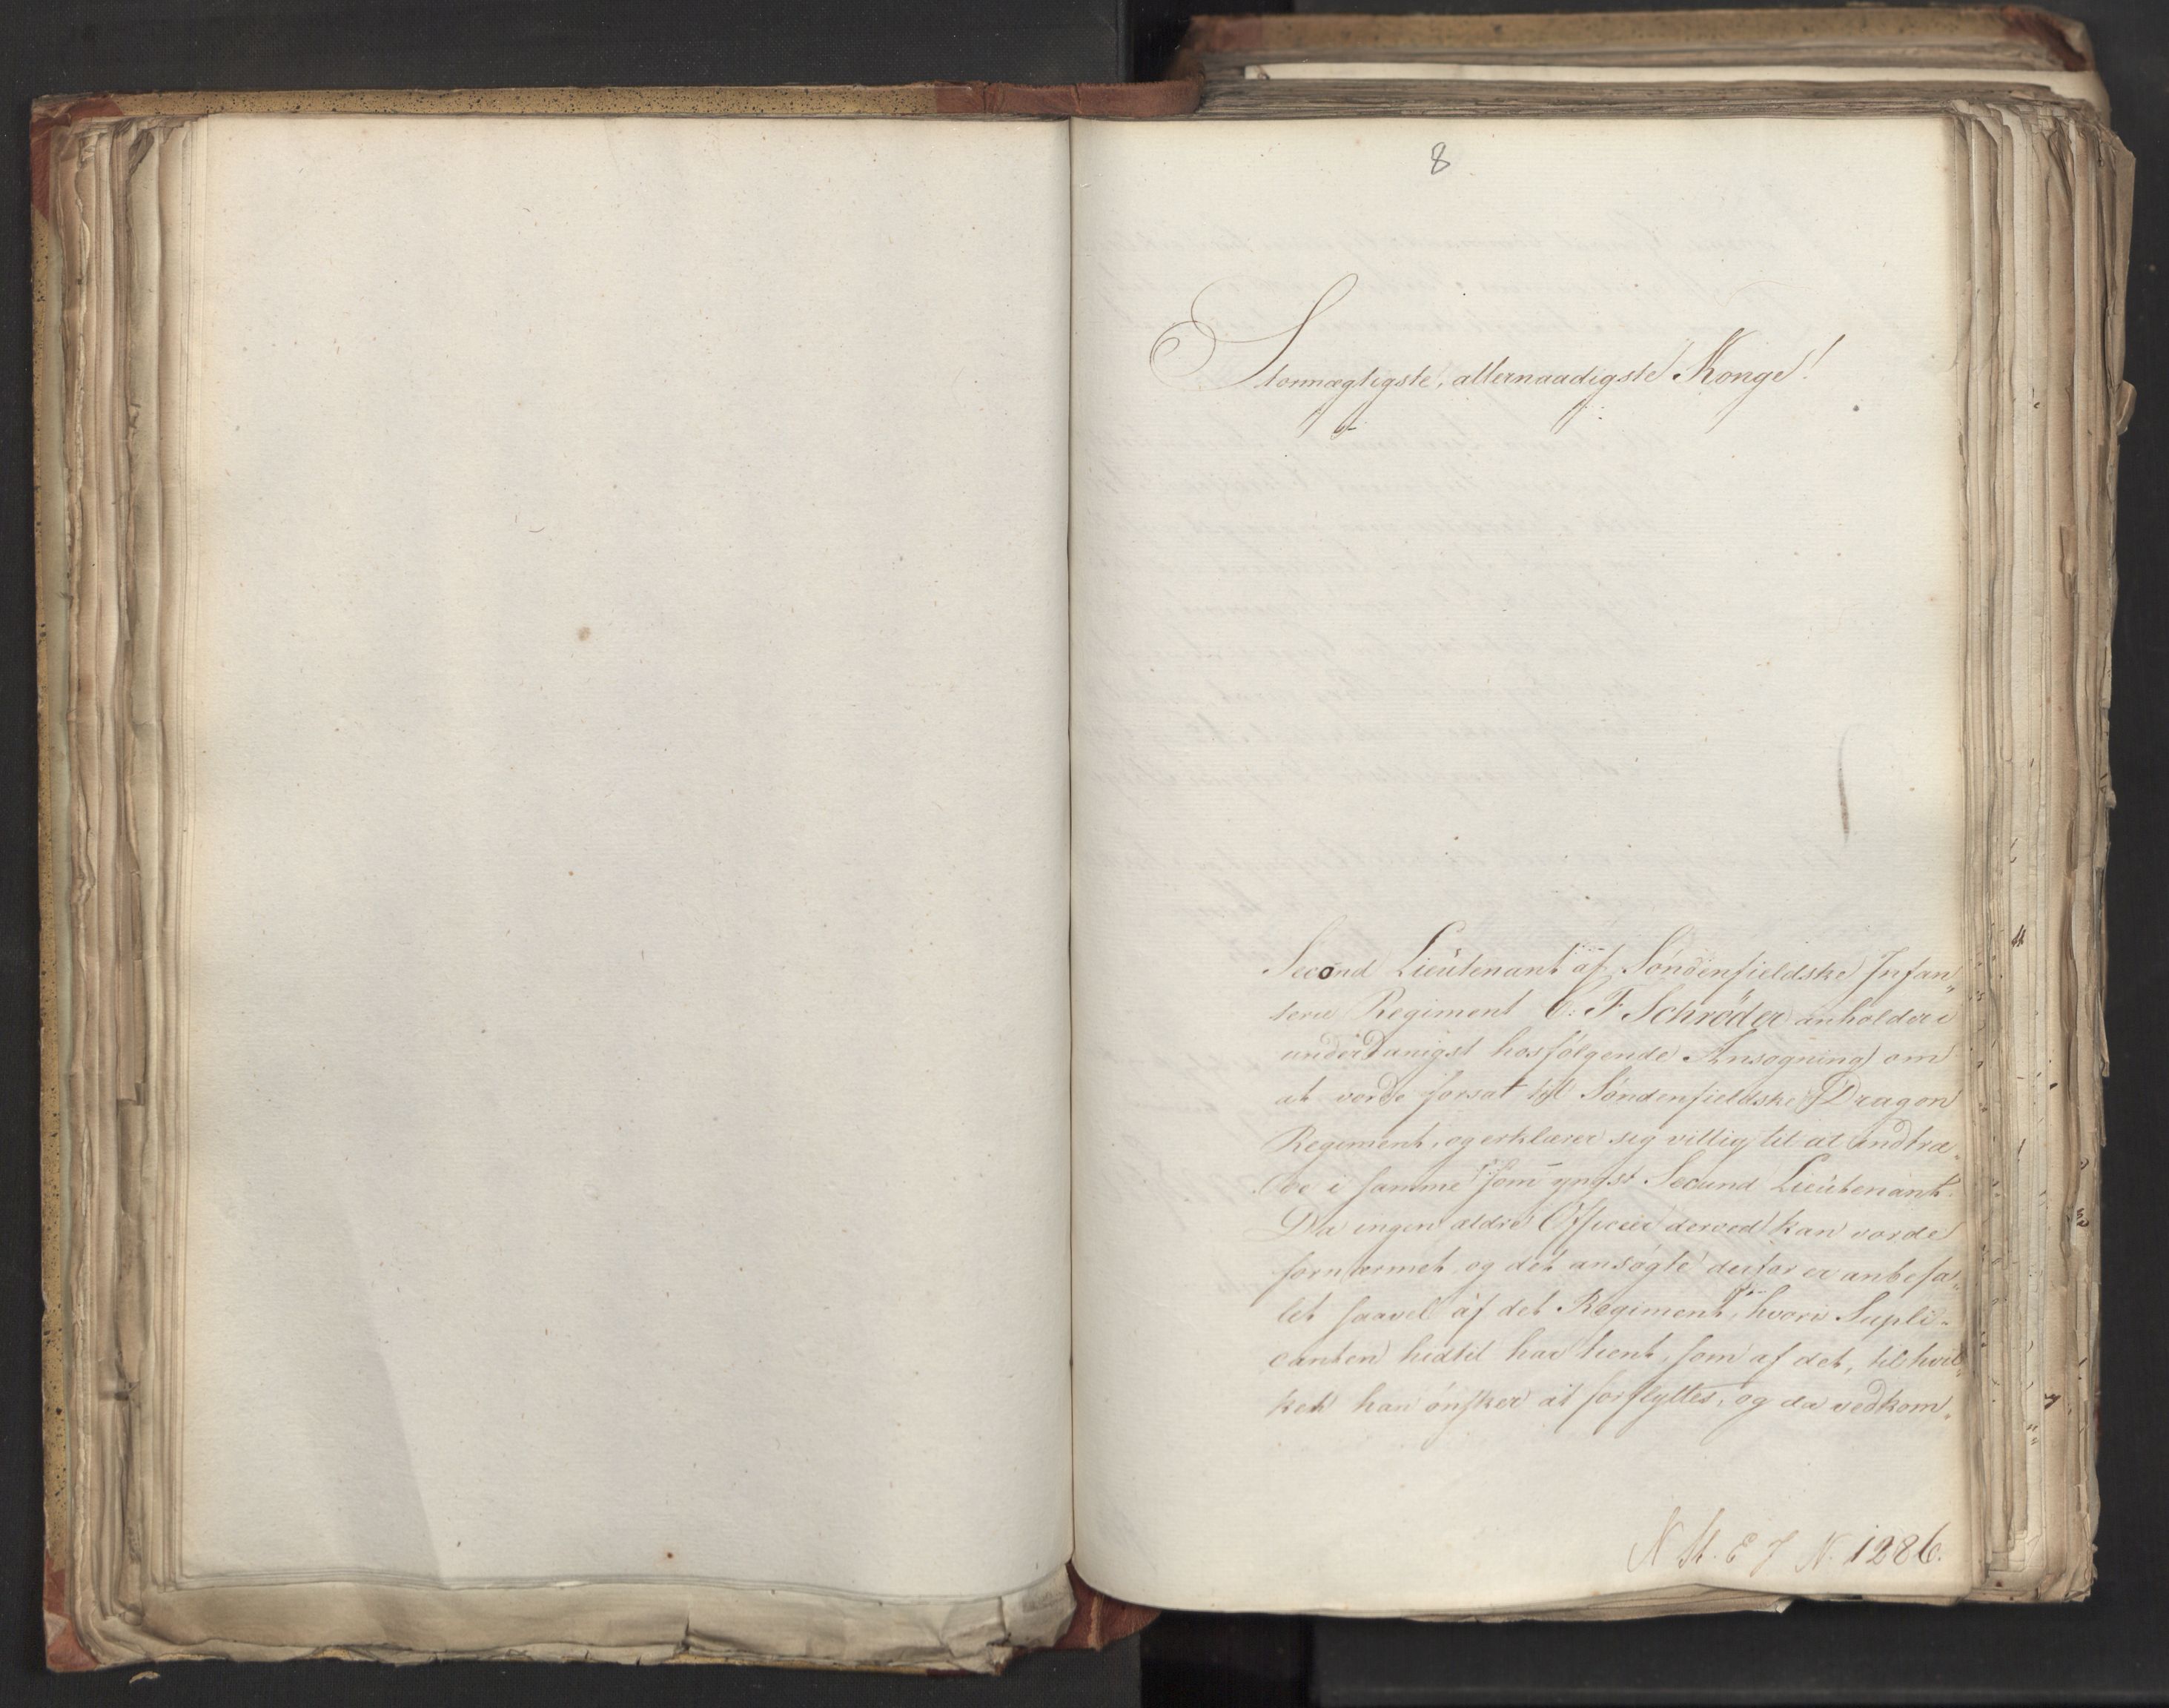 8
Stormægtigste, allernaadigste Konge!
Second Lieutenant af Søndenfieldske Infan„
terie Regiment C: F: Schrøder anholder i
underdanigst hosfølgende Ansøgning om
at vorde forsat til Søndenfieldske Dragon
Regiment, og erklærer sig villig til at indtræ„
de i samme som yngst Secund Lieutenant.
Da ingen ældre Officier derved kan vorde
fornærmet og det ansøgte derfor er anbefa„
let saavel af det Regiment, hvori Supli„
canten hidtil har tient, som af det, til hvil„
ket han ønsker at forflyttes, og da vedkom„
N St. E J N. 1286.